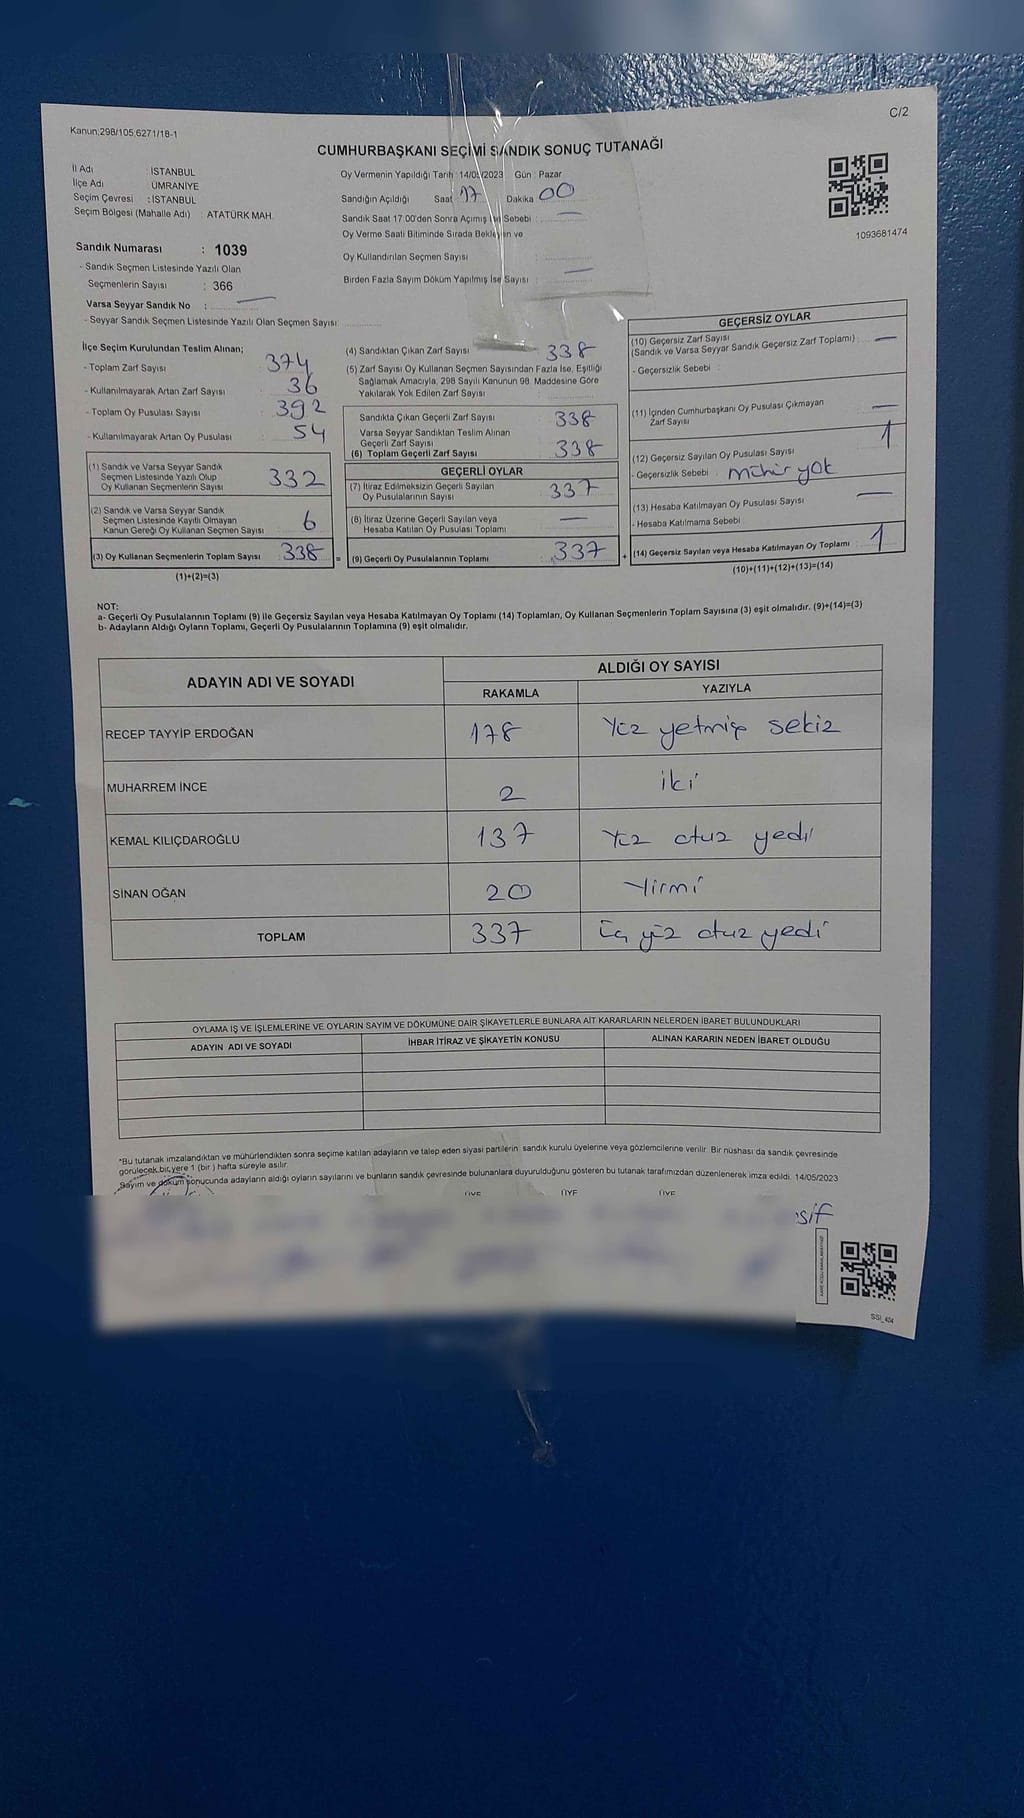 C/2
Kanun;298/105,6271/18-1
CUMHURBAŞKANI SEÇİMİ SANDIK SONUÇ TUTANAĞI
İl Adı : İSTANBUL
İlçe Adı : ÜMRANİYE
Seçim Çevresi : İSTANBUL
Seçim Bölgesi (Mahalle Adı) : ATATÜRK MAH.
Sandık Numarası : 1039
- Sandık Seçmen Listesinde Yazılı Olan
Seçmenlerin Sayısı : 366
Varsa Seyyar Sandık No :
- Seyyar Sandık Seçmen Listesinde Yazılı Olan Seçmen Sayısı
Oy Vermenin Yapıldığı Tarih : 14/05/2023 Gün : Pazar
Sandığın Açıldığı Saat 17 Dakika 00
Sandık Saat 17:00'den Sonra Açımış İse Sebebi :
Oy Verme Saati Bitiminde Sırada Bekleyen ve
Oy Kullandırılan Seçmen Sayısı :
Birden Fazla Sayım Döküm Yapılmış İse Sayısı :
1093681474
İlçe Seçim Kurulundan Teslim Alınan;
- Toplam Zarf Sayısı : 374
- Kullanılmayarak Artan Zarf Sayısı : 36
- Toplam Oy Pusulası Sayısı : 392
- Kullanılmayarak Artan Oy Pusulası : 54
(1) Sandık ve Varsa Seyyar Sandık
Seçmen Listesinde Yazılı Olup
Oy Kullanan Seçmenlerin Sayısı : 332
(2) Sandık ve Varsa Seyyar Sandık
Seçmen Listesinde Kayıtlı Olmayan
Kanun Gereği Oy Kullanan Seçmen Sayısı : 6
(3) Oy Kullanan Seçmenlerin Toplam Sayısı : 338 =
(1)+(2)=(3)
(4) Sandıktan Çıkan Zarf Sayısı : 338
(5) Zarf Sayısı Oy Kullanan Seçmen Sayısından Fazla İse, Eşitliği
Sağlamak Amacıyla, 298 Sayılı Kanunun 98. Maddesine Göre
Yakılarak Yok Edilen Zarf Sayısı :
Sandıkta Çıkan Geçerli Zarf Sayısı : 338
Varsa Seyyar Sandıktan Teslim Alınan
Geçerli Zarf Sayısı
(6) Toplam Geçerli Zarf Sayısı : 338
GEÇERLİ OYLAR
(7) İtiraz Edilmeksizin Geçerli Sayılan
Oy Pusulalarının Sayısı : 337
(8) İtiraz Üzerine Geçerli Sayılan veya
Hesaba Katılan Oy Pusulası Toplamı :
(9) Geçerli Oy Pusulalarının Toplamı : 337 +
GEÇERSİZ OYLAR
(10) Geçersiz Zarf Sayısı
(Sandık ve Varsa Seyyar Sandık Geçersiz Zarf Toplamı) :
- Geçersizlik Sebebi :
(11) İçinden Cumhurbaşkanı Oy Pusulası Çıkmayan
Zarf Sayısı
(12) Geçersiz Sayılan Oy Pusulası Sayısı : 1
- Geçersizlik Sebebi : mühür yok
(13) Hesaba Katılmayan Oy Pusulası Sayısı :
- Hesaba Katılmama Sebebi
(14) Geçersiz Sayılan veya Hesaba Katılmayan Oy Toplamı : 1
(10)+(11)+(12)+(13)=(14)
NOT:
a- Geçerli Oy Pusulalarının Toplamı (9) ile Geçersiz Sayılan veya Hesaba Katılmayan Oy Toplamı (14) Toplamları, Oy Kullanan Seçmenlerin Toplam Sayısına (3) eşit olmalıdır. (9)+(14)=(3)
b- Adayların Aldığı Oyların Toplamı, Geçerli Oy Pusulalarının Toplamına (9) eşit olmalıdır.
ADAYIN ADI VE SOYADI ALDIĞI OY SAYISI
RAKAMLA YAZIYLA
RECEP TAYYİP ERDOĞAN 178 Yüz yetmiş sekiz
MUHARREM İNCE 2 iki
KEMAL KILIÇDAROĞLU 137 Yüz otuz yedi
SİNAN OĞAN 20 Yirmi
TOPLAM 337 üç yüz otuz yedi
OYLAMA İŞ VE İŞLEMLERİNE VE OYLARIN SAYIM VE DÖKÜMÜNE DAİR ŞİKAYETLERLE BUNLARA AİT KARARLARIN NELERDEN İBARET BULUNDUKLARI
ADAYIN ADI VE SOYADI İHBAR İTİRAZ VE ŞİKAYETİN KONUSU ALINAN KARARIN NEDEN İBARET OLDUĞU
*Bu tutanak imzalandıktan ve mühürlendikten sonra seçime katılan adayların ve talep eden siyasi partilerin sandık kurulu üyelerine veya gözlemcilerine verilir. Bir nüshası da sandık çevresinde
görülecek bir yere 1 (bir ) hafta süreyle asılır.
Sayım ve döküm sonucunda adayların aldığı oyların sayılarını ve bunların sandık çevresinde bulunanlara duyurulduğunu gösteren bu tutanak tarafımızdan düzenlenerek imza edildi. 14/05/2023
ÜYE ÜYE ÜYE
SSI_404